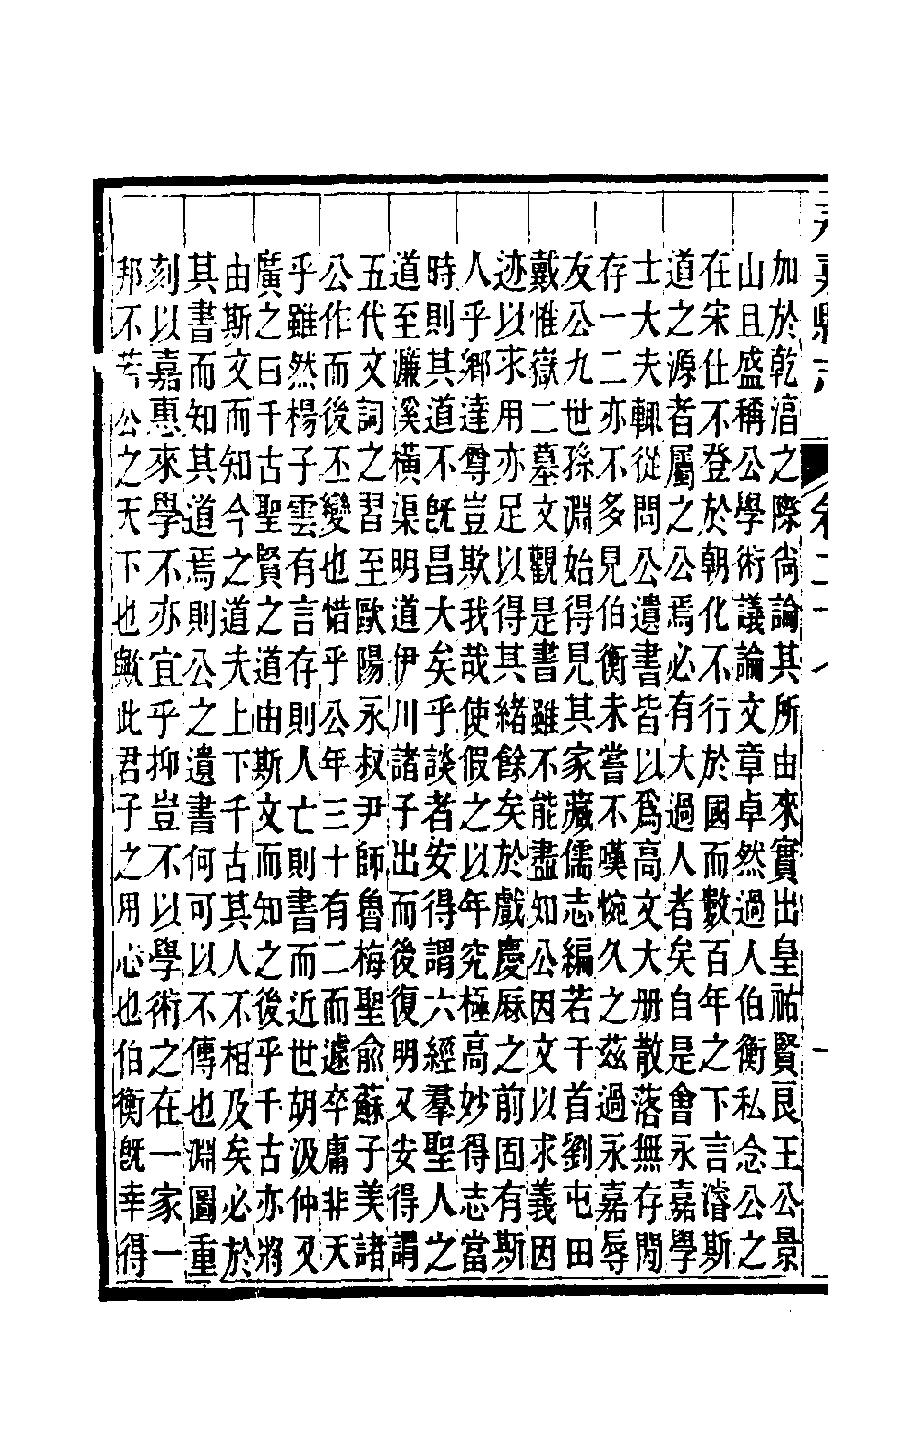 加於乾淳之際尙論其所由來實出皇祐賢良王公景
山且盛稱公學術議論文章卓然過人伯衡私念公之
在宋仕不登於朝化不行於國而數百年之下言濬斯
道之源者屬之公焉必有大過人者矣自是會永嘉學
士大夫輙從問公遺書皆以爲高文大册散落無存閒
存一二亦不多見伯衡未嘗不嘆惋久之茲過永嘉辱
友公九世孫淵始得見其家藏儒志編若干首劉屯田
戴惟嶽二墓文觀是書雖不能盡知公因文以求義因
迹以求用亦足以得其緒餘矣於戲慶厤之前固有斯
人乎鄉達尊豈欺我哉使假之以年究極高妙得志當
時則其道不旣昌大矣乎談者安得謂六經羣聖人之
道至濂溪橫渠明道伊川諸子出而後復明又安得謂
五代文詞之習至歐陽永叔尹師魯梅聖俞蘇子美諸
公作而後丕變也惜乎公年三十有二而遽卒庸非天
乎雖然楊子雲有言存則人亡則書而近世胡汲仲又
廣之曰千古聖賢之道由斯文而知之後乎千古亦將
由斯文而知今之道夫上下千古其人不相及矣必於
其書而知其道焉則公之遺書何可以不傳也淵圖重
刻以嘉惠來學不亦宜乎抑豈不以學術之在一家一
邦不若公之天下也歟此君子之用心也伯衡旣幸得